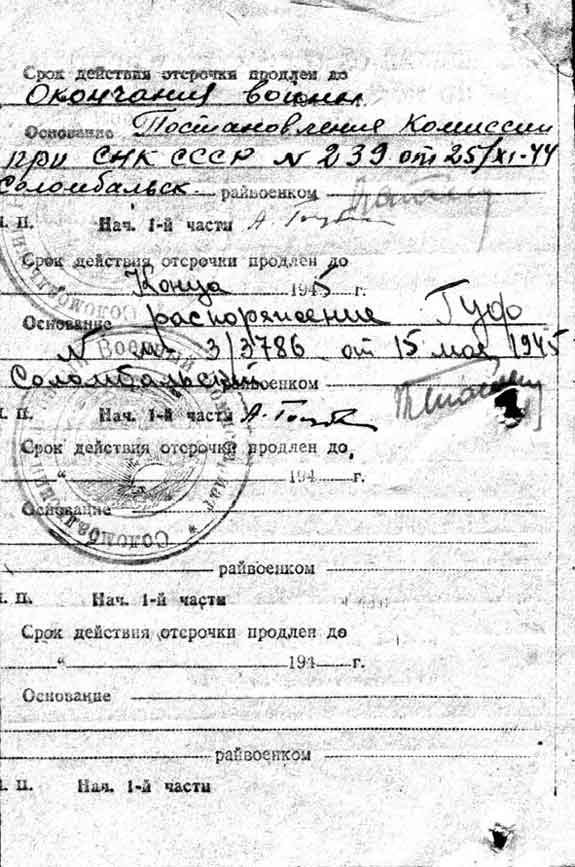 Срок действия отсрочки продлен до
Окончания войны
Основание Постановления Комиссии
при СНК СССР N 239 от 25/XI-44
Соломбальск райвоенком
М. П. Нач. 1-й части
Срок действия отсрочки продлен до
Конца 1945 г.
Основание распоряжение Гуфо
N 3/3786 от 15 мая 1945
Соломбальский райвоенком
М. П. Нач. 1-й части
Срок действия отсрочки продлен до
" 194 г.
Основание
райвоенком
М. П. Нач. 1-й части
Срок действия отсрочки продлен до
" 194 г.
Основание
райвоенком
М. П. Нач. 1-й части